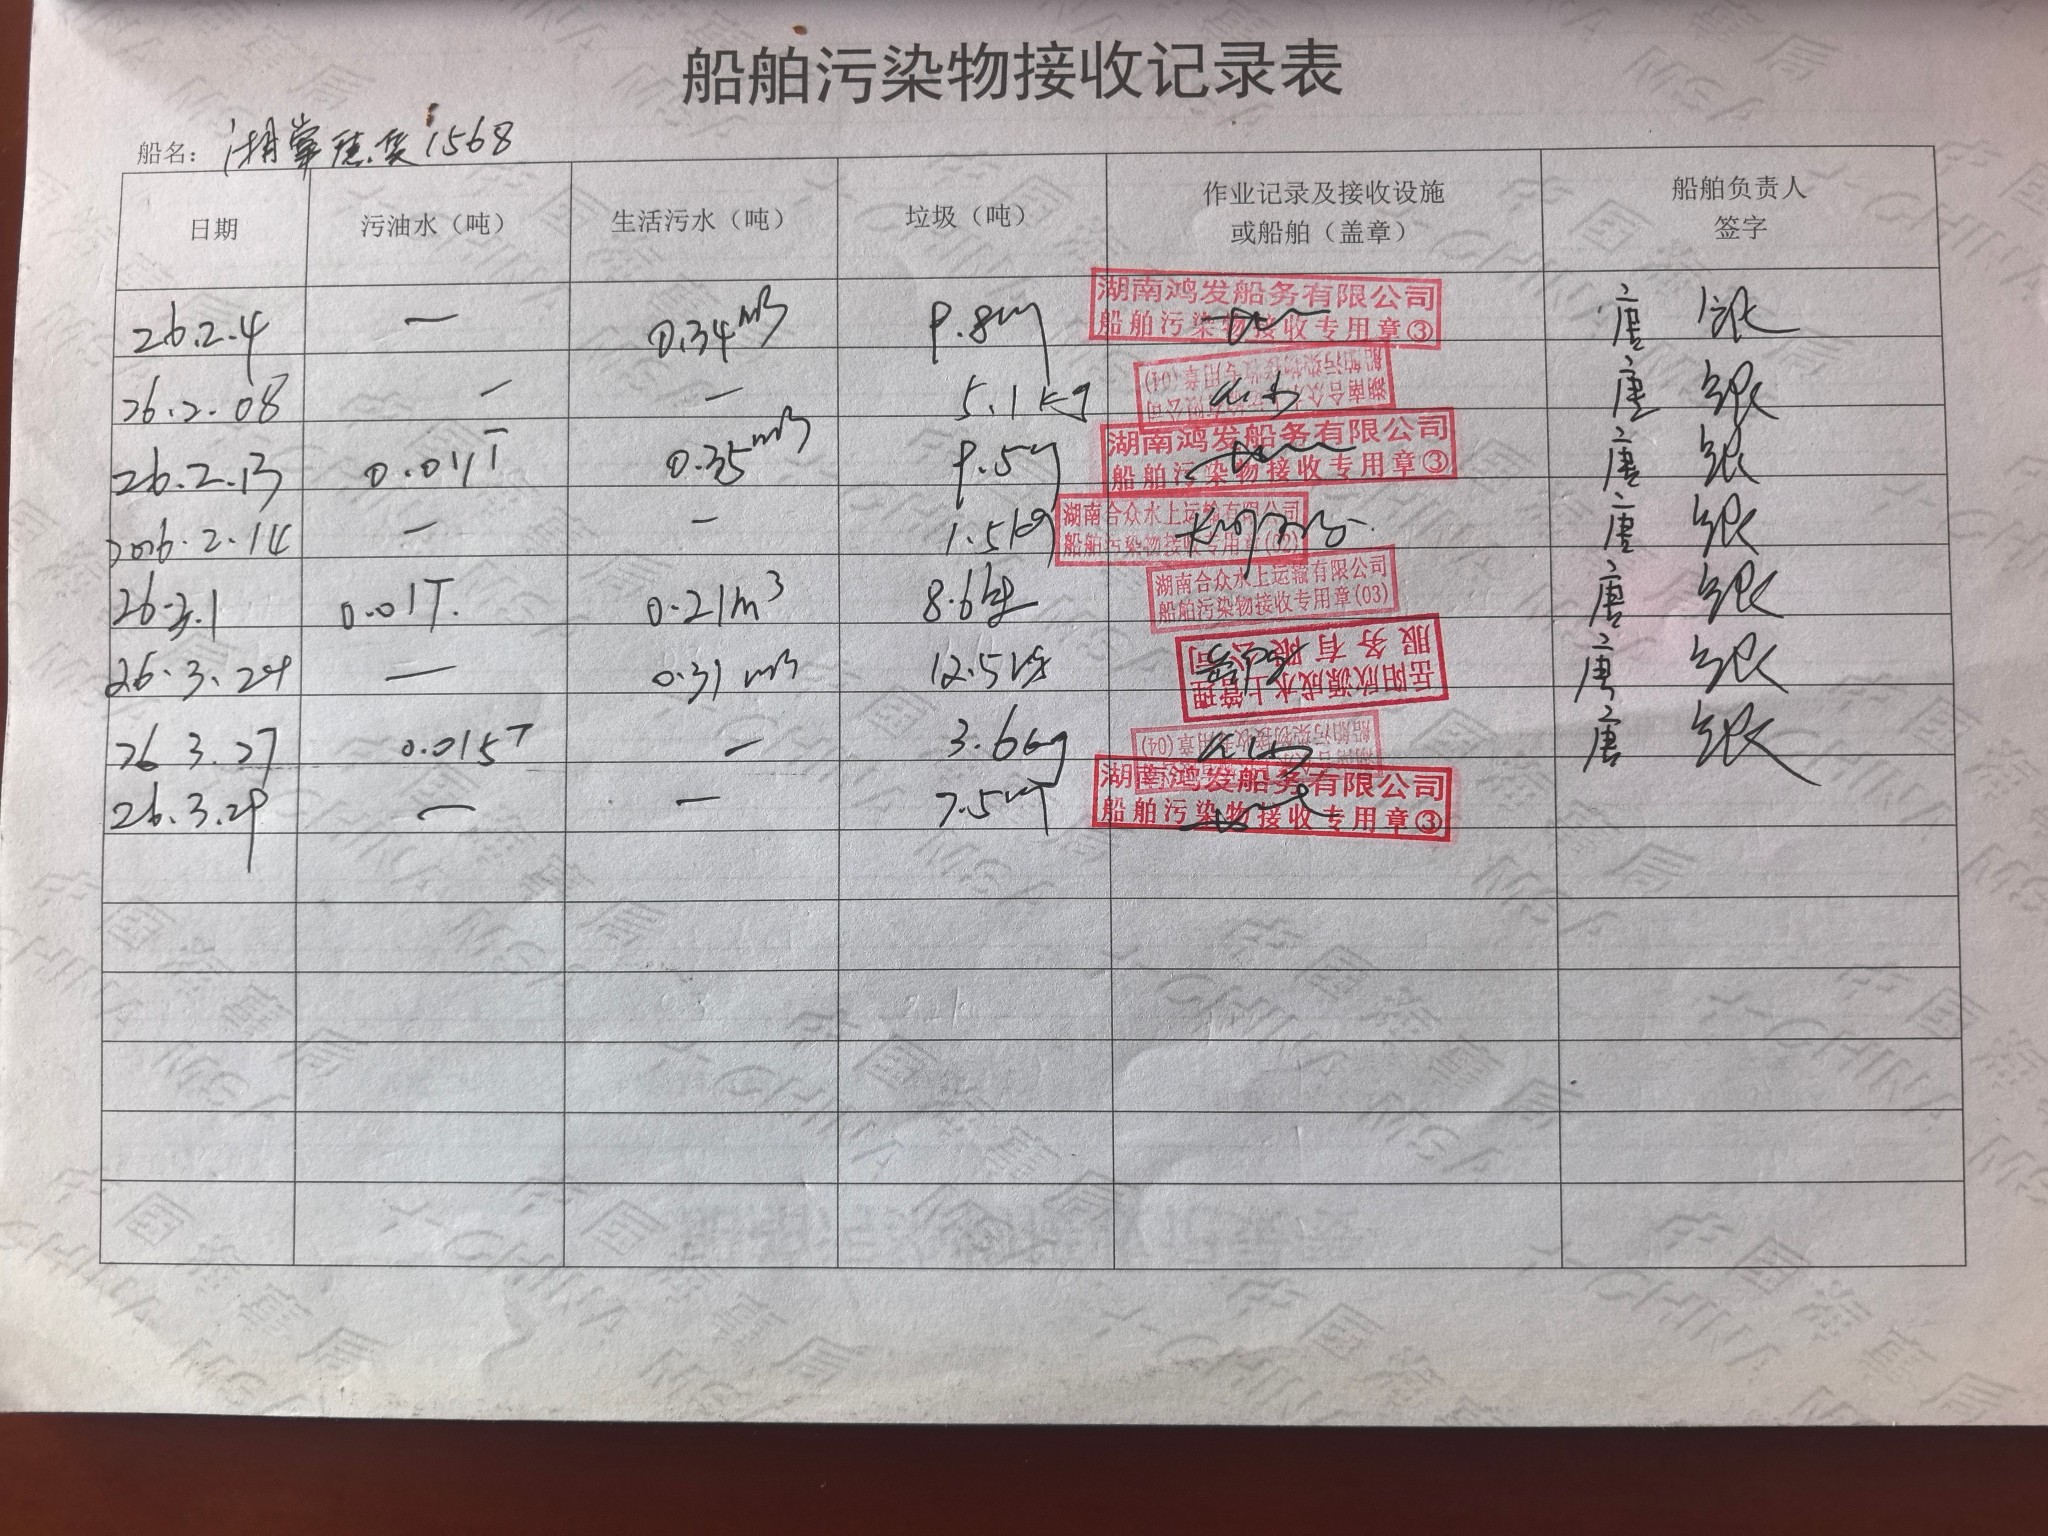 船舶污染物接收记录表
船名：湘常德货1568
日期 污油水（吨） 生活污水（吨） 垃圾（吨） 作业记录及接收设施或船舶（盖章） 船舶负责人签字
26.2.4 — 0.34m3 9.8kg 湖南鸿发船务有限公司 船舶污染物接收专用章③ 唐
26.2.08 — — 5.1kg 湖南合众水上运输有限公司 船舶污染物接收专用章(04) 唐
26.2.13 0.01T 0.35m3 9.5kg 湖南鸿发船务有限公司 船舶污染物接收专用章③ 唐
2026.2.14 — — 1.5kg 湖南合众水上运输有限公司 船舶污染物接收专用章 唐
26.3.1 0.01T. 0.21m3 8.6kg 湖南合众水上运输有限公司 船舶污染物接收专用章(03) 唐
26.3.24 — 0.31m3 12.5kg 岳阳欣源成水上管理服务有限公司 唐
26.3.27 0.015T — 3.6kg 船舶污染物接收专用章(04) 唐
26.3.29 — — 7.5kg 湖南鸿发船务有限公司 船舶污染物接收专用章③
中国海事局
CHINA MSA